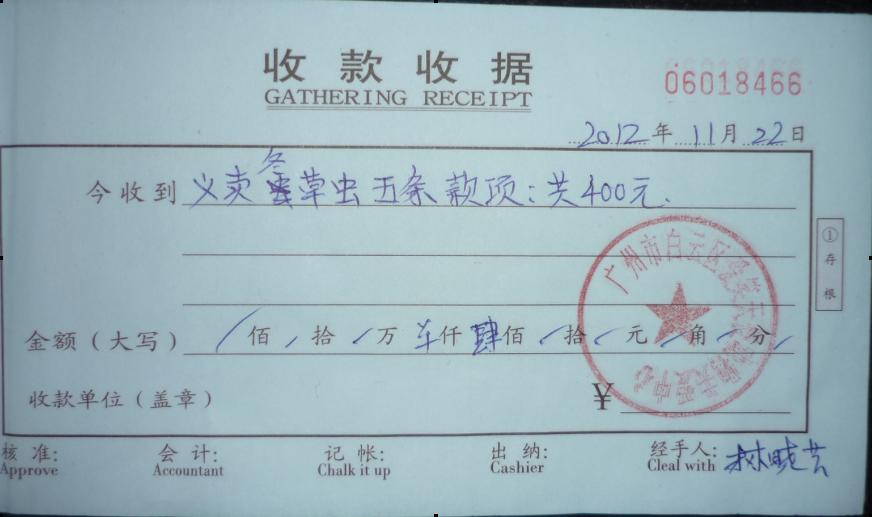 收款收据
GATHERING RECEIPT
06018466
2012年11月22日
今收到 义卖冬草虫五条款项:共400元.
①存根
金额(大写) / 佰 / 拾 / 万 仟 肆佰 / 拾 / 元 / 角 / 分 /
广州市白云区
收款单位(盖章) ¥
核准: 会计: 记帐: 出纳: 经手人:
Approve Accountant Chalk it up Cashier Cleal with